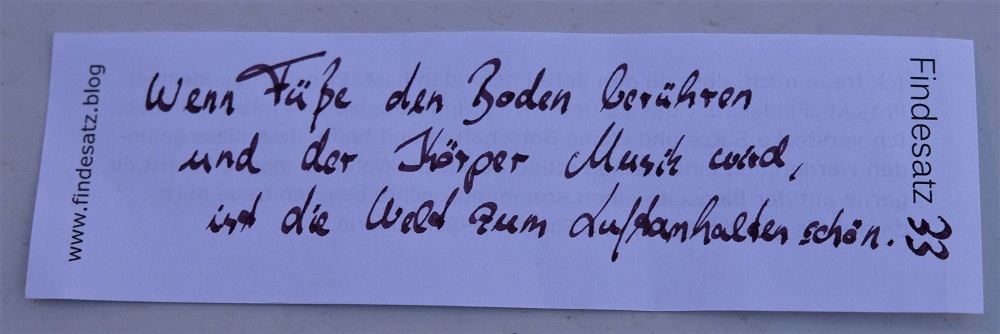 www.findesatz.blog
Wenn Füße den Boden berühren
und der Körper Musik wird,
ist die Welt zum Luftanhalten schön.
Findesatz 33